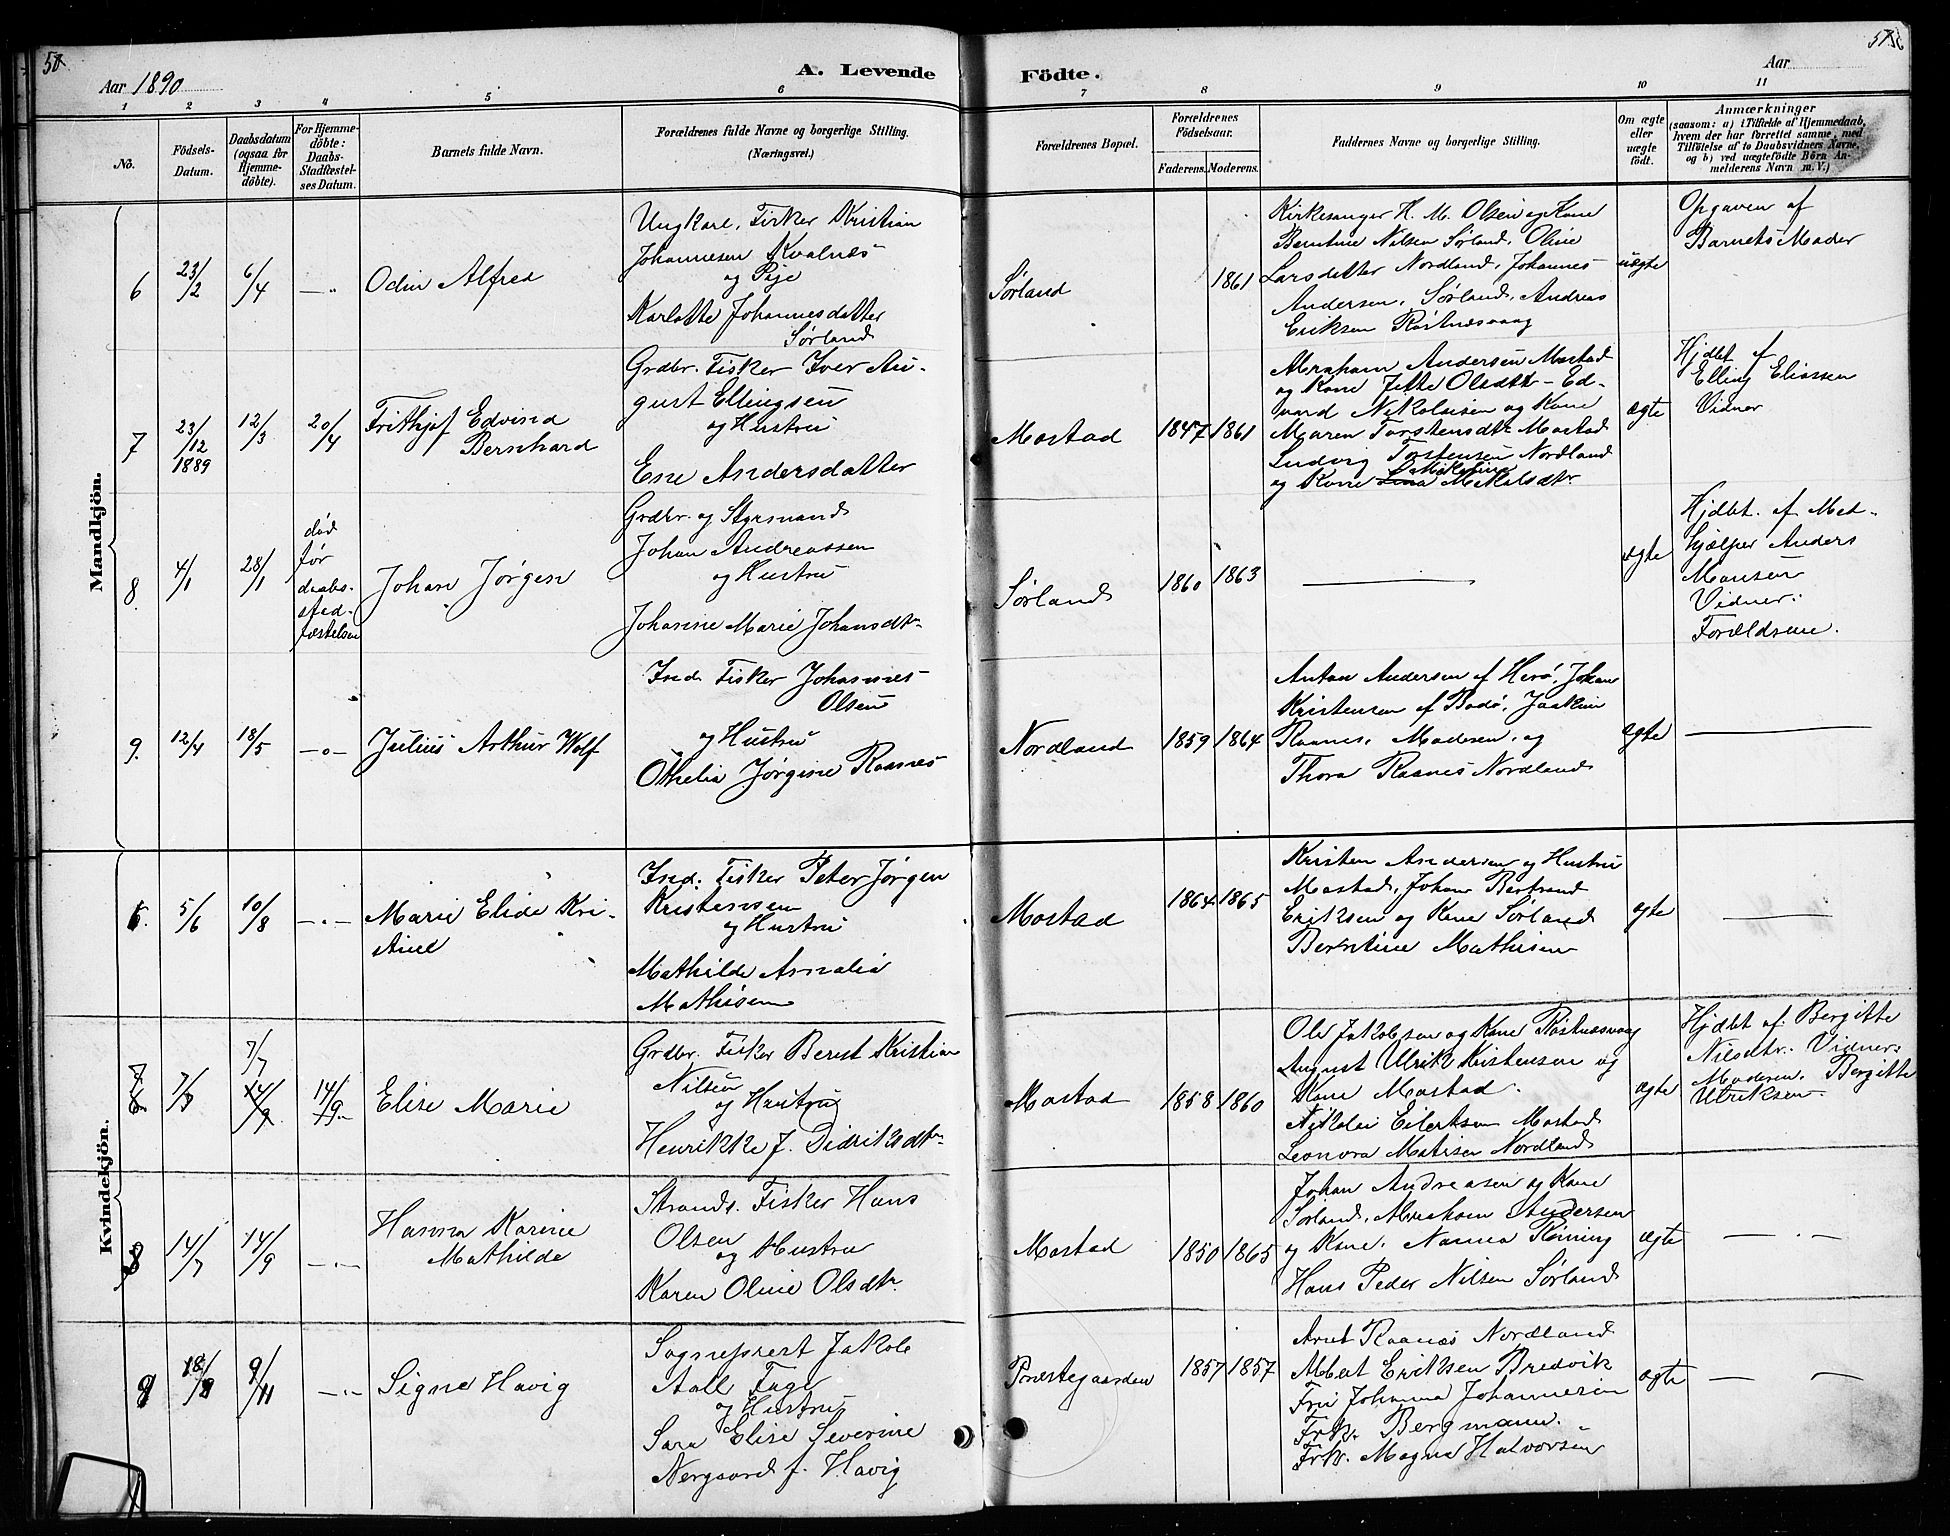 Aar 1890
A. Levende
Födte.
Aar
1 2 3 4 5 6 7 8 9 10 11
No.
Födsels-Datum.
Daabsdatum (ogsaa for Hjemmedöbte).
For Hjemmedöbte: Daabs-Stadfæstelses Datum.
Barnets fulde Navn.
Forældrenes fulde Navne og borgerlige Stilling.
(Næringsvei.)
Forældrenes Bopæl.
Forældrenes Födselsaar.
Faderens. Moderens.
Faddernes Navne og borgerlige Stilling.
Om ægte eller uægte födt.
Anmærkninger
(saasom: a) i Tilfælde af Hjemmedaab, hvem der har forrettet samme, med Tilföielse af to Daabsvidners Navne, og b) ved uægtefödte Börn Anmelderens Navn m. V.)
Mandkjön.
6
23/2
6/4
Odin Alfred
Ungkarl, Fisker Kristian
Johannesen Kvalnes
og Pige
Karlotte Johannesdatter
Sørland
Sørland
1861
Kirkesanger H. M. Olsen og Kone
Berntine Nilsen Sørland, Oline
Larsdatter Nordland, Johannes
Andersen, Sørland, Andreas
Eriksen Røstnesvaag
uægte
Opgaven af
Barnets Moder
7
23/12 1889
12/3
20/4
Frithjof Edvind
Bernhard
Grdbr. Fisker Iver Au-
gust Ellingsen
og Hustru
Ene Andersdatter
Mostad
1847
1861
Abraham Andersen Mostad
og Kone Jette Olsdtr - Ed-
vard Nikolaisen og Kone
Maren Torstensdtr Mostad
Ludvig Torstensen Nordland
og Kone Mikalsdtr.
ægte
Hjdbt af
Elling Eliassen
Vidner
8
4/1
28/1
død
før
daabs-
stad-
fæstelsen
Johan Jørgen
Grdbr. og Styrmand
Johan Andreassen
og Hustru
Johanne Marie Johansdtr.
Sørland
1860
1863
ægte
Hjdbt. af Med-
hjælper Anders
Monsen
Vidner:
Forældrene.
9.
12/4
18/5
Julius Arthur Wolf
Ind. Fisker Johannes
Olsen
og Hustru
Othelia Jørgine Raanes
Nordland
1859
1864
Anton Andersen af Herø, Johan
Kristensen af Bodø, Joakim
Raanes, Moderen, og
Thora Raanes Nordland
ægte
Kvindekjön.
6.
5/6
10/8
Marie Elide Kri-
stine
Ind. Fisker Peter Jørgen
Kristensen
og Hustru
Mathilde Amalia
Mathisen
Mostad
1864
1865
Kristen Andersen og Hustru
Mostad, Johan Bertrand
Eriksen og Kone Sørland
Berntine Mathisen
ægte
7
7/7
14/9
14/9
Elise Marie
Grdbr. Fisker Bernt Kristian
Nilsen
og Hustru
Henrikke J. Didriksdtr.
Mostad
1858
1860
Ole Jakobsen og Kone Røstnesvaag
August Ulrik Kristensen og
Kone Mostad.
Nikolai Eilertsen Mostad
Leonora Matisen Nordland
ægte
Hjdbt af Bergitte
Nilsdtr. Vidner:
Moderen, Bergitte
Ulriksen.
8
14/7
14/9
Hanna Karine
Mathilde
Strands. Fisker Hans
Olsen
og Hustru
Karen Oline Olsdtr.
Mostad
1850
1865
Johan Andreasen og Kone
Sørland, Abraham Andersen
og Kone, Nanna
Hans Peder Nilsen Sørland
ægte
9
18/8
9/11
Signe Havig
Sogneprest Jakob
Aall Fage
og Hustru
Sara Elise Severine
Nergaard f. Havig
Præstegaarden
1857
1857
Arnt Raanes Nordland
Albert Eriksen Bredvik
Fru Johanna Johannesen
Frk. Bergmann.
Frk. Magna Halvorsen
ægte